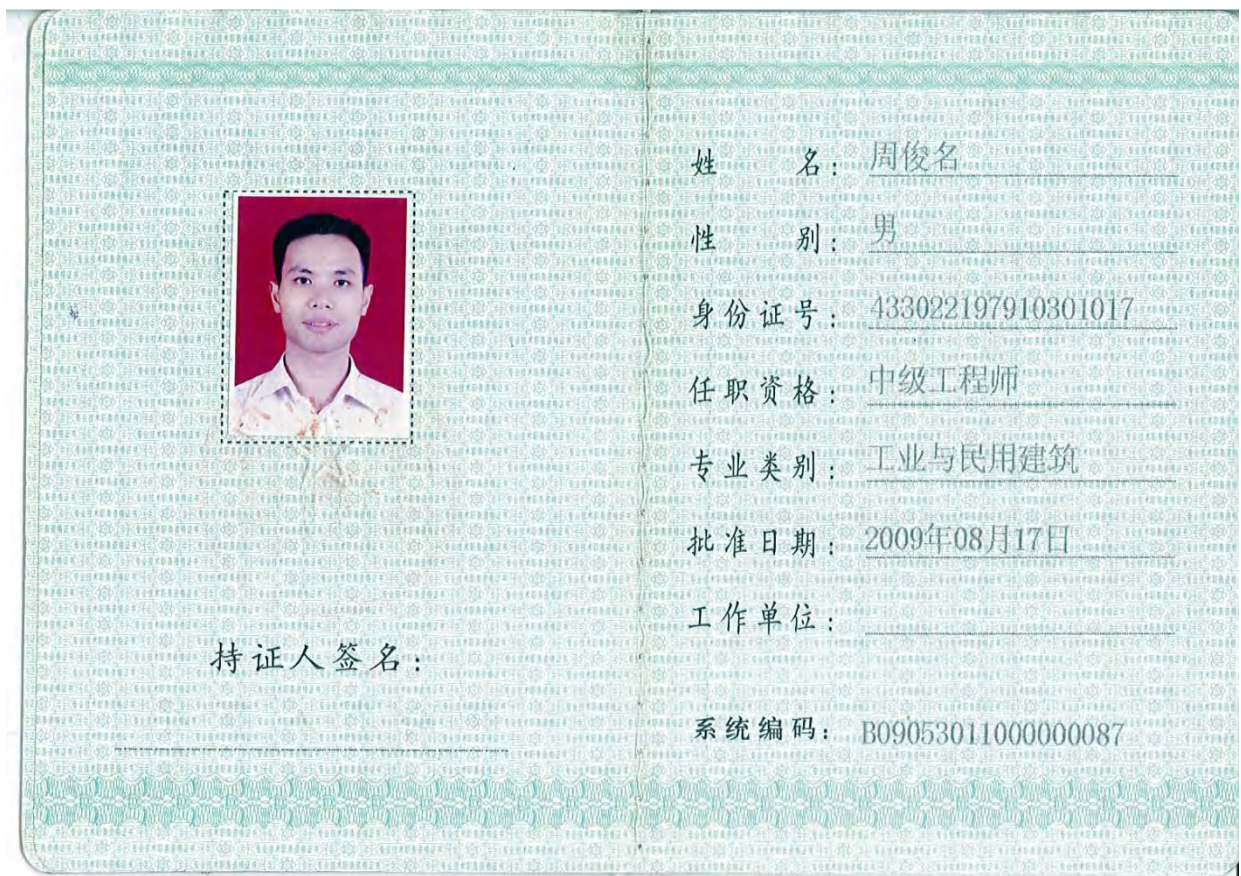 持证人签名：
姓名：周俊名
性别：男
身份证号：433022197910301017
任职资格：中级工程师
专业类别：工业与民用建筑
批准日期：2009年08月17日
工作单位：
系统编码：B09053011000000087